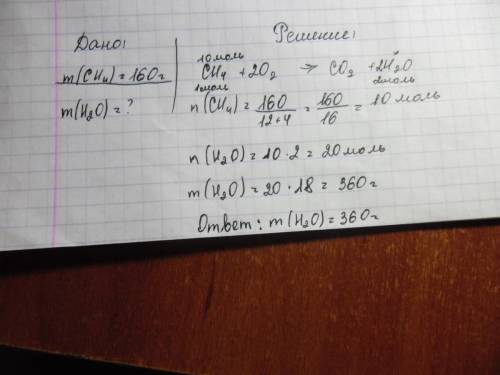 Дано:
m(CH4) = 160г
m(H2O) = ?
Решение:
10моль x
CH4 + 2O2 → CO2 + 2H2O
1моль 2моль
n(CH4) = 160/12+4 = 160/16 = 10 моль
n(H2O) = 10 · 2 = 20моль
m(H2O) = 20 · 18 = 360г
Ответ: m(H2O) = 360г